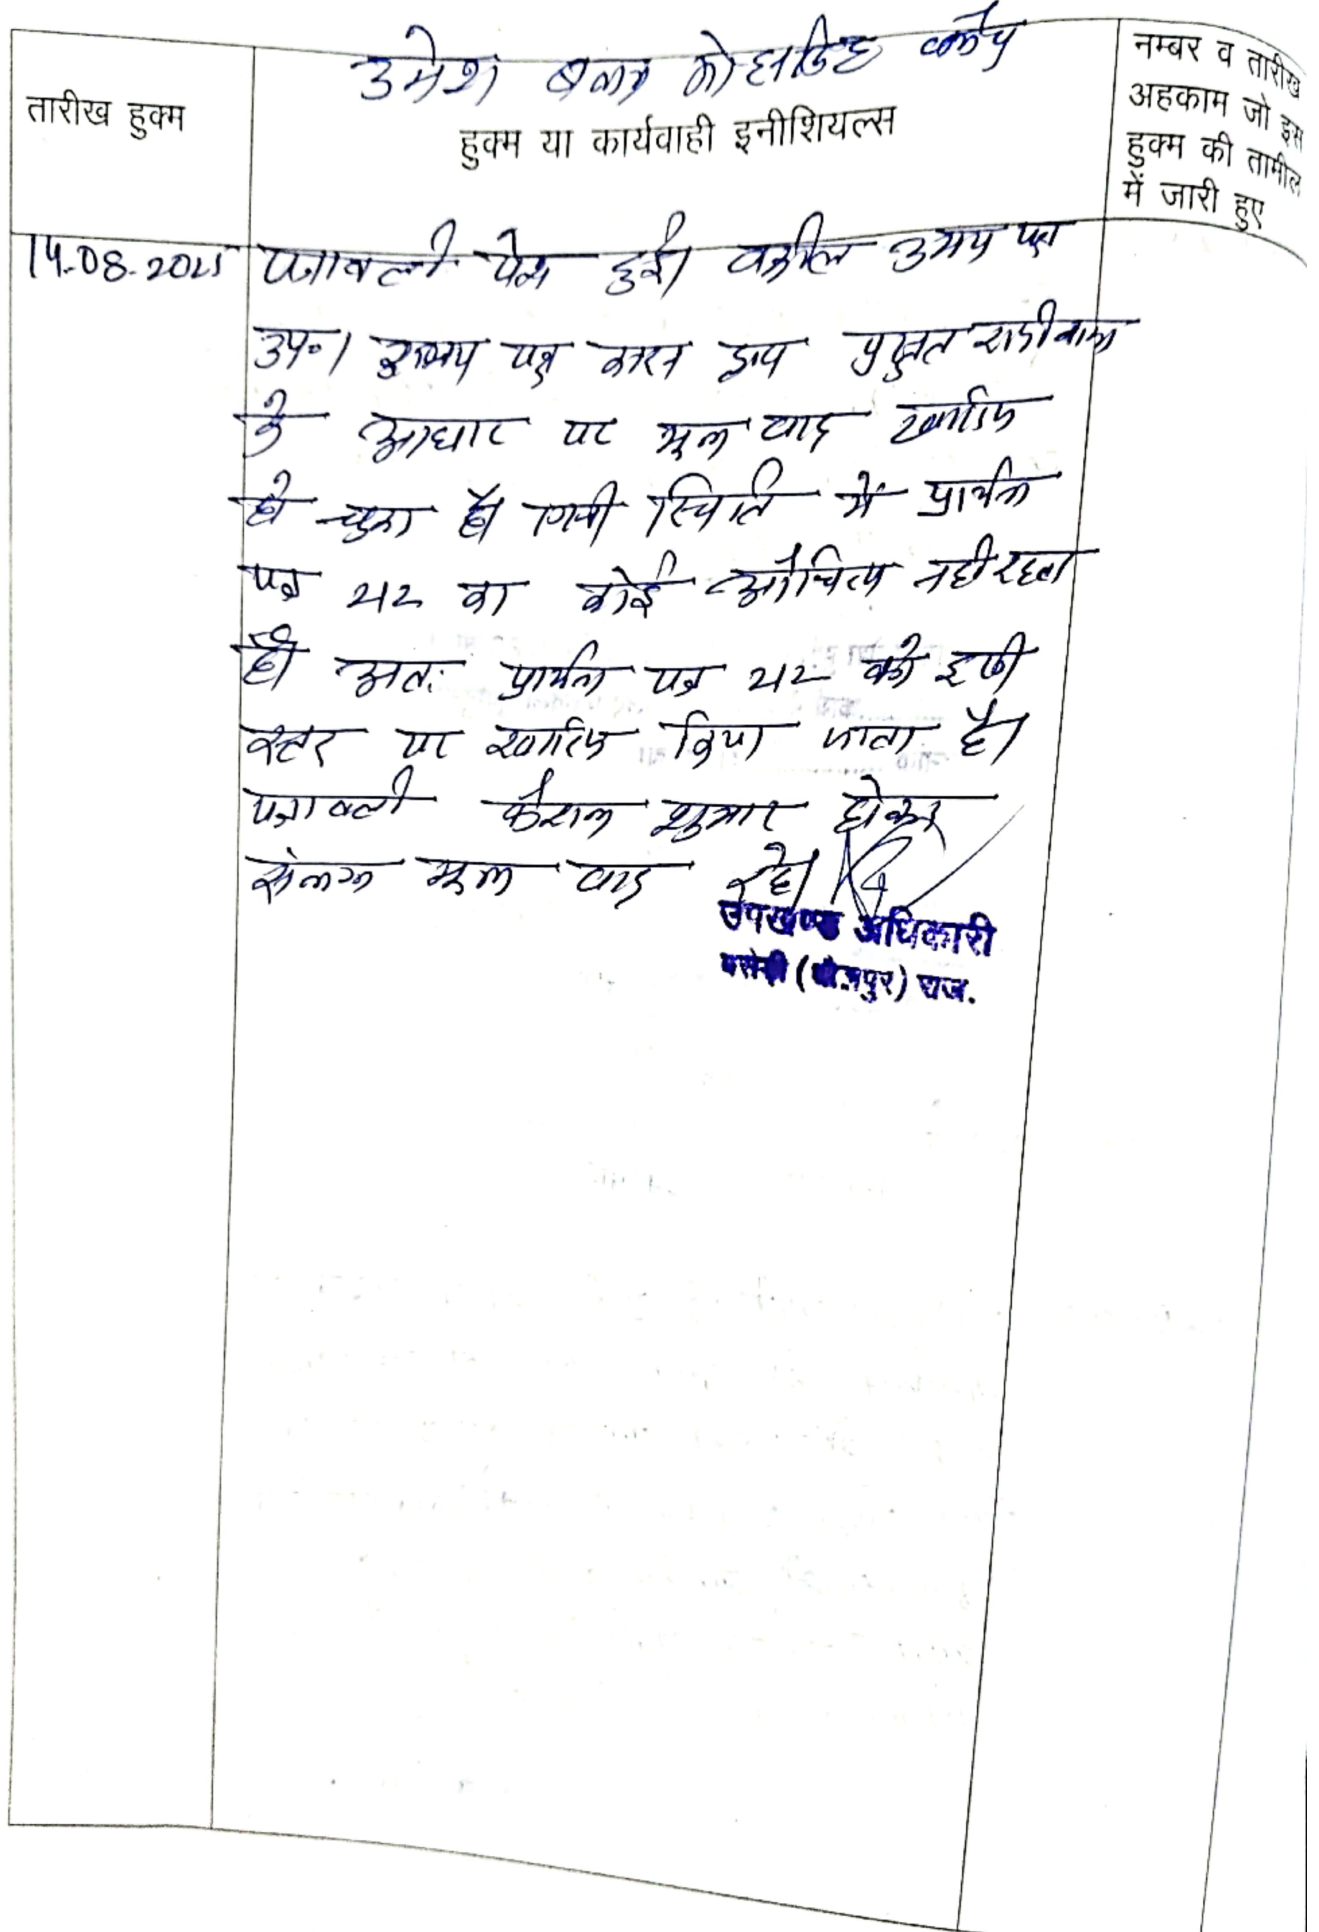 उमेश बनाम
तारीख हुक्म
हुक्म या कार्यवाही इनीशियल्स
नम्बर व तारीख
अहकाम जो इस
हुक्म की तामील
में जारी हुए
14-08-2025 पत्रावली पेश हुई। वकील उभय पक्ष
उप०। उभय पक्ष द्वारा प्रस्तुत राजीनामा
के आधार पर मूल वाद खारिज
हो चुका है। ऐसी स्थिति में प्रार्थना
पत्र 212 का कोई औचित्य नही रहता
है। अतः प्रार्थना पत्र 212 को इसी
स्तर पर खारिज किया जाता है।
पत्रावली फैसल शुमार होकर
संलग्न मूल वाद रहे।
उपखण्ड अधिकारी
(धौलपुर) राज.